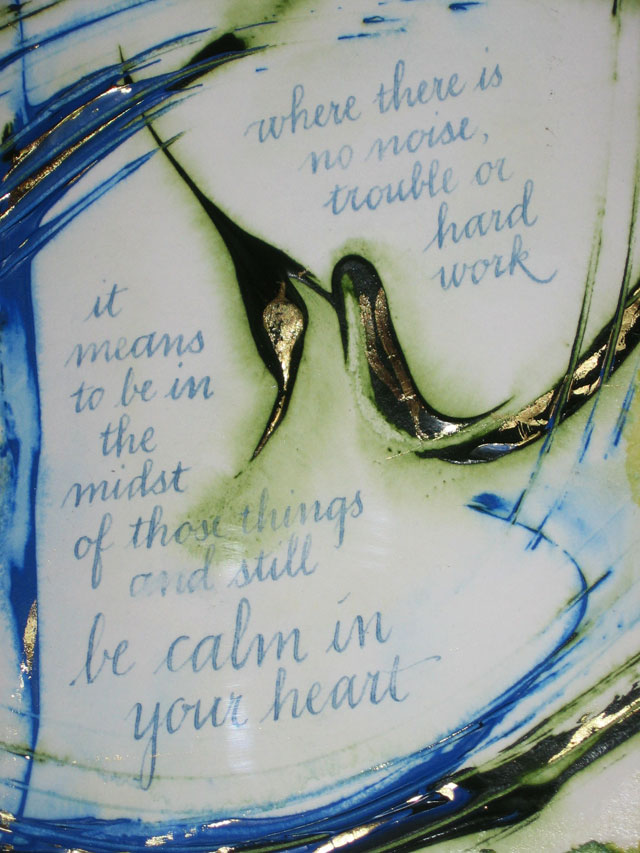 where there is
no noise,
trouble or
hard
work
it
means
to be in
the
midst
of those things
and still
be calm in
your heart